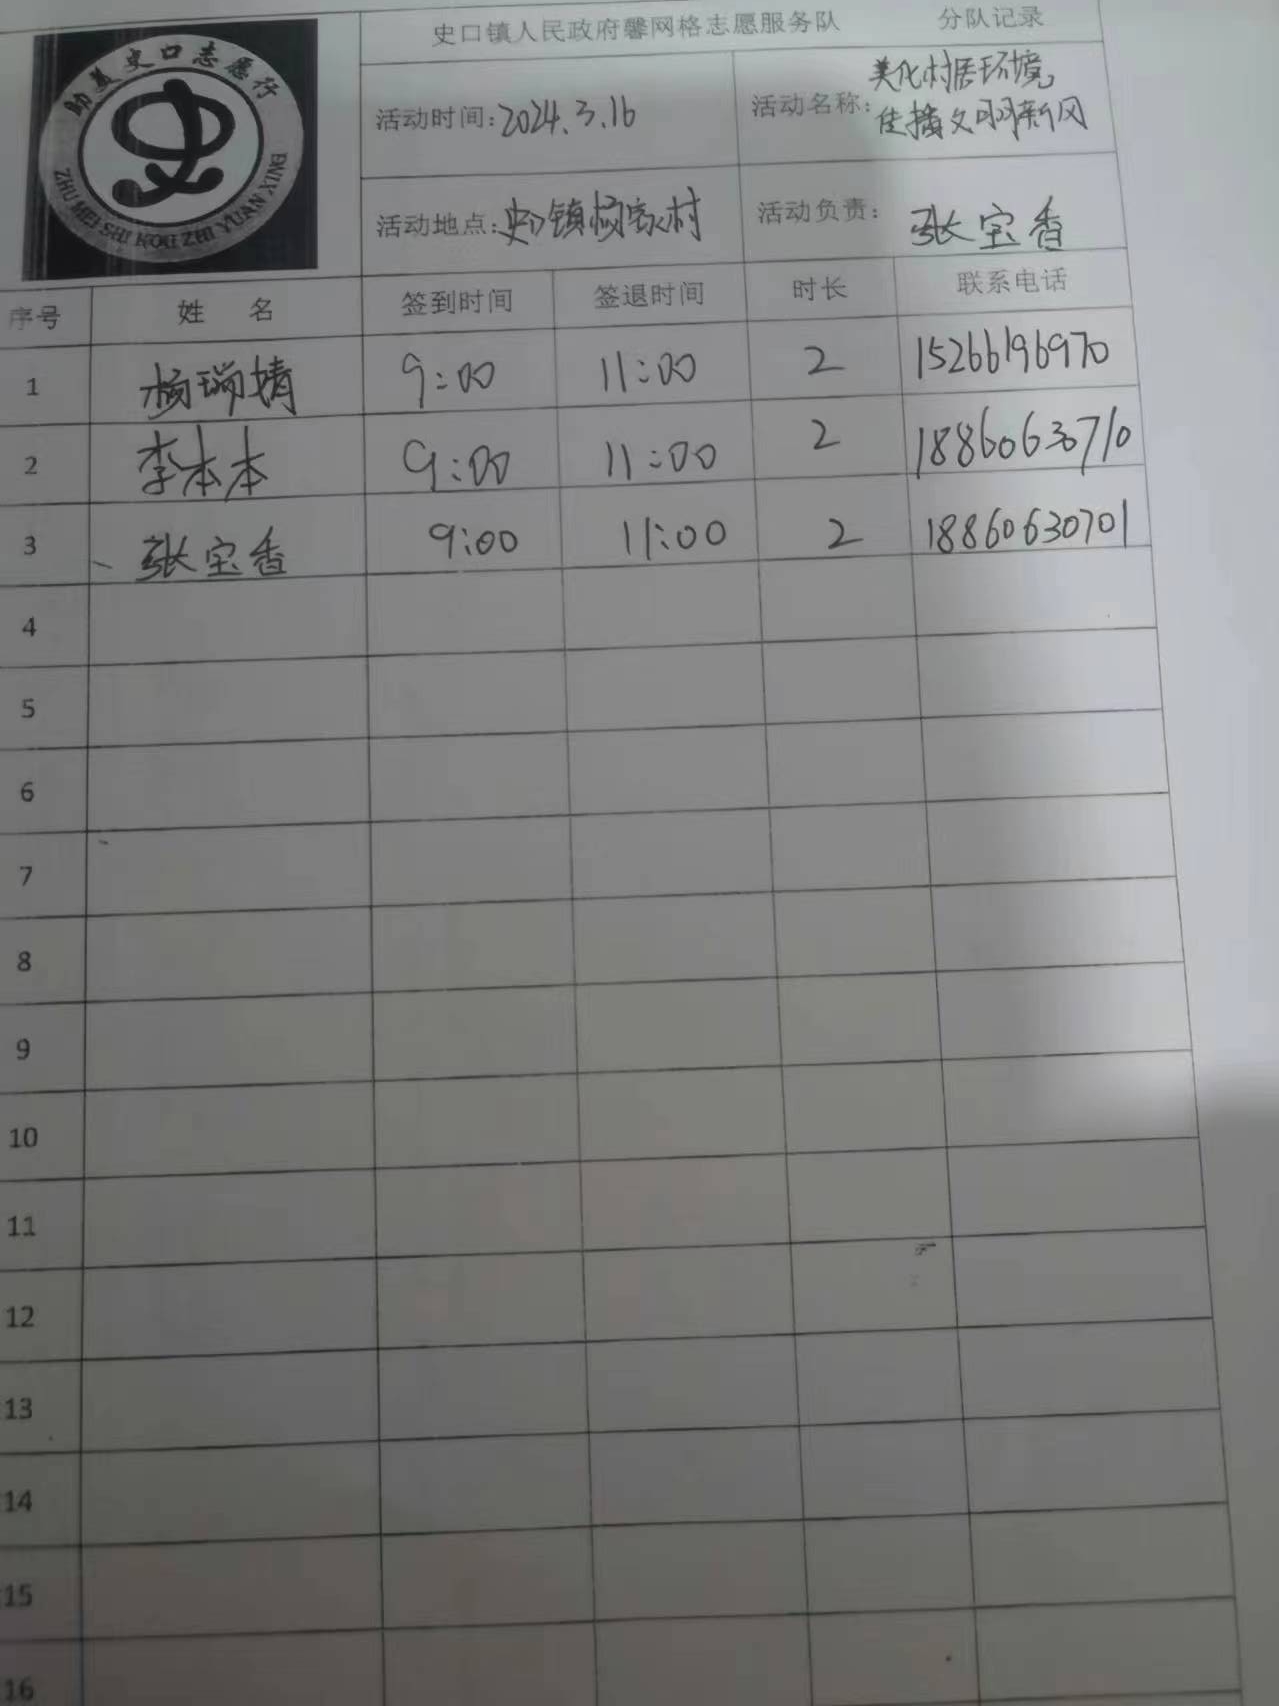 助美史口志愿行
ZHU MEI SHI KOU ZHI YUAN XING
史口镇人民政府馨网格志愿服务队 分队记录
活动时间:2024.3.16
活动名称:美化村居环境
传播文明新风
活动地点:史口镇杨家村
活动负责:张宝香
序号 姓 名 签到时间 签退时间 时长 联系电话
1 杨瑞婧 9:00 11:00 2 15266196970
2 李本本 9:00 11:00 2 18860630710
3 张宝香 9:00 11:00 2 18860630701
4
5
6
7
8
9
10
11
12
13
14
15
16